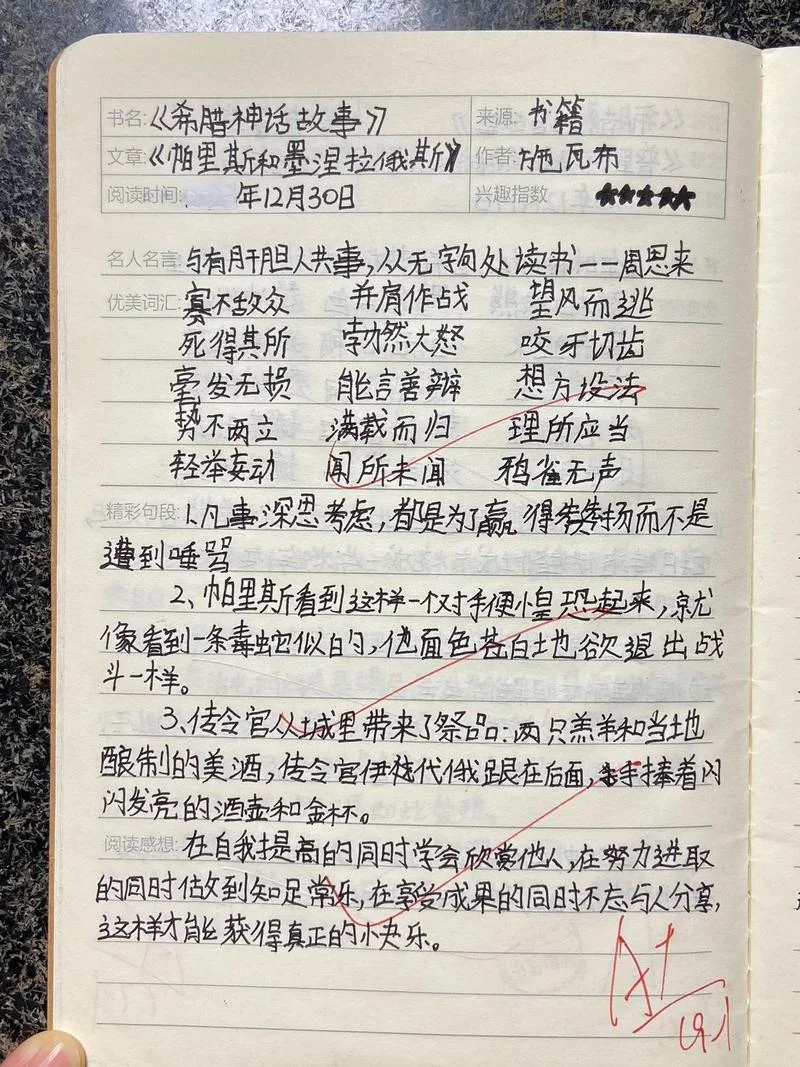 书名:《希腊神话故事》 来源: 书籍
文章:《帕里斯和墨涅拉俄斯》 作者: 施瓦布
阅读时间: 年12月30日 兴趣指数 ★★★★★
名人名言: 与有肝胆人共事,从无字句处读书——周恩来
优美词汇: 寡不敌众 并肩作战 望风而逃
死得其所 勃然大怒 咬牙切齿
毫发无损 能言善辩 想方设法
势不两立 满载而归 理所应当
轻举妄动 闻所未闻 鸦雀无声
精彩句段: 1、凡事深思考虑,都是为了赢得赞扬而不是
遭到唾骂
2、帕里斯看到这样一个对手便惶恐起来,就
像看到一条毒蛇似的,他面色苍白地欲退出战
斗一样。
3、传令官从城里带来了祭品:两只羔羊和当地
酿制的美酒,传令官伊特代俄跟在后面,手捧着闪
闪发亮的酒壶和金杯。
阅读感想: 在自我提高的同时学会欣赏他人,在努力进取
的同时做到知足常乐,在享受成果的同时不忘与人分享,
这样才能获得真正的快乐。
A+